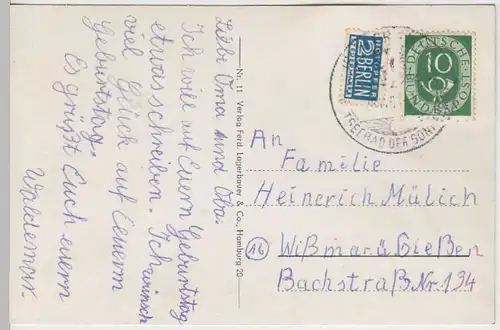 Liebe Oma und Opa.
Ich will auf Euern Geburtstag
etwas schreiben. Ich wünsch
viel Glück auf Eeuerm
Geburtstag.
Es grüßt Euch euern
Waldemar.
Nr. 11 Verlag Ferd. Lagerbauer & Co., Hamburg 20
2
BERLIN
NOTOPFER
STEUERMARKE
DEUTSCHE
BUNDESPOST
10
OSTSEEBAD DER SONNE
An
Familie
Heinerich Mülich
(16) Wißmar ü. Gießen
Bachstraß. Nr. 134